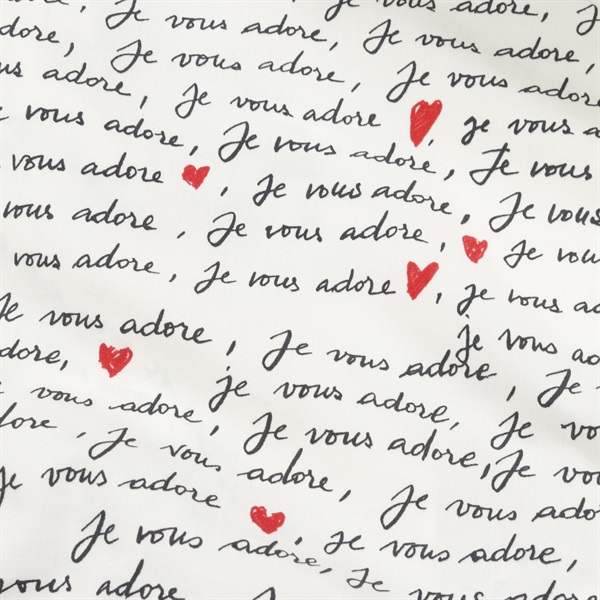 Je vous adore, Je vous adore, J
dore, Je vous adore, Je vous adore,
us adore, Je vous adore, Je vous adore
vous adore, Je vous adore, je vous a
vous adore, Je vous adore, Je vous
vous adore, Je vous adore, Je vous
vous adore, Je vous adore, Je vou
Je vous adore, Je vous adore, je vous ad
dore, je vous adore, Je vous ao
vous adore, Je vous adore, Je vo
dore, Je vous adore, Je vous ado
Je vous adore, Je vous adore,
Je vous adore, Je vous adore
vous adore